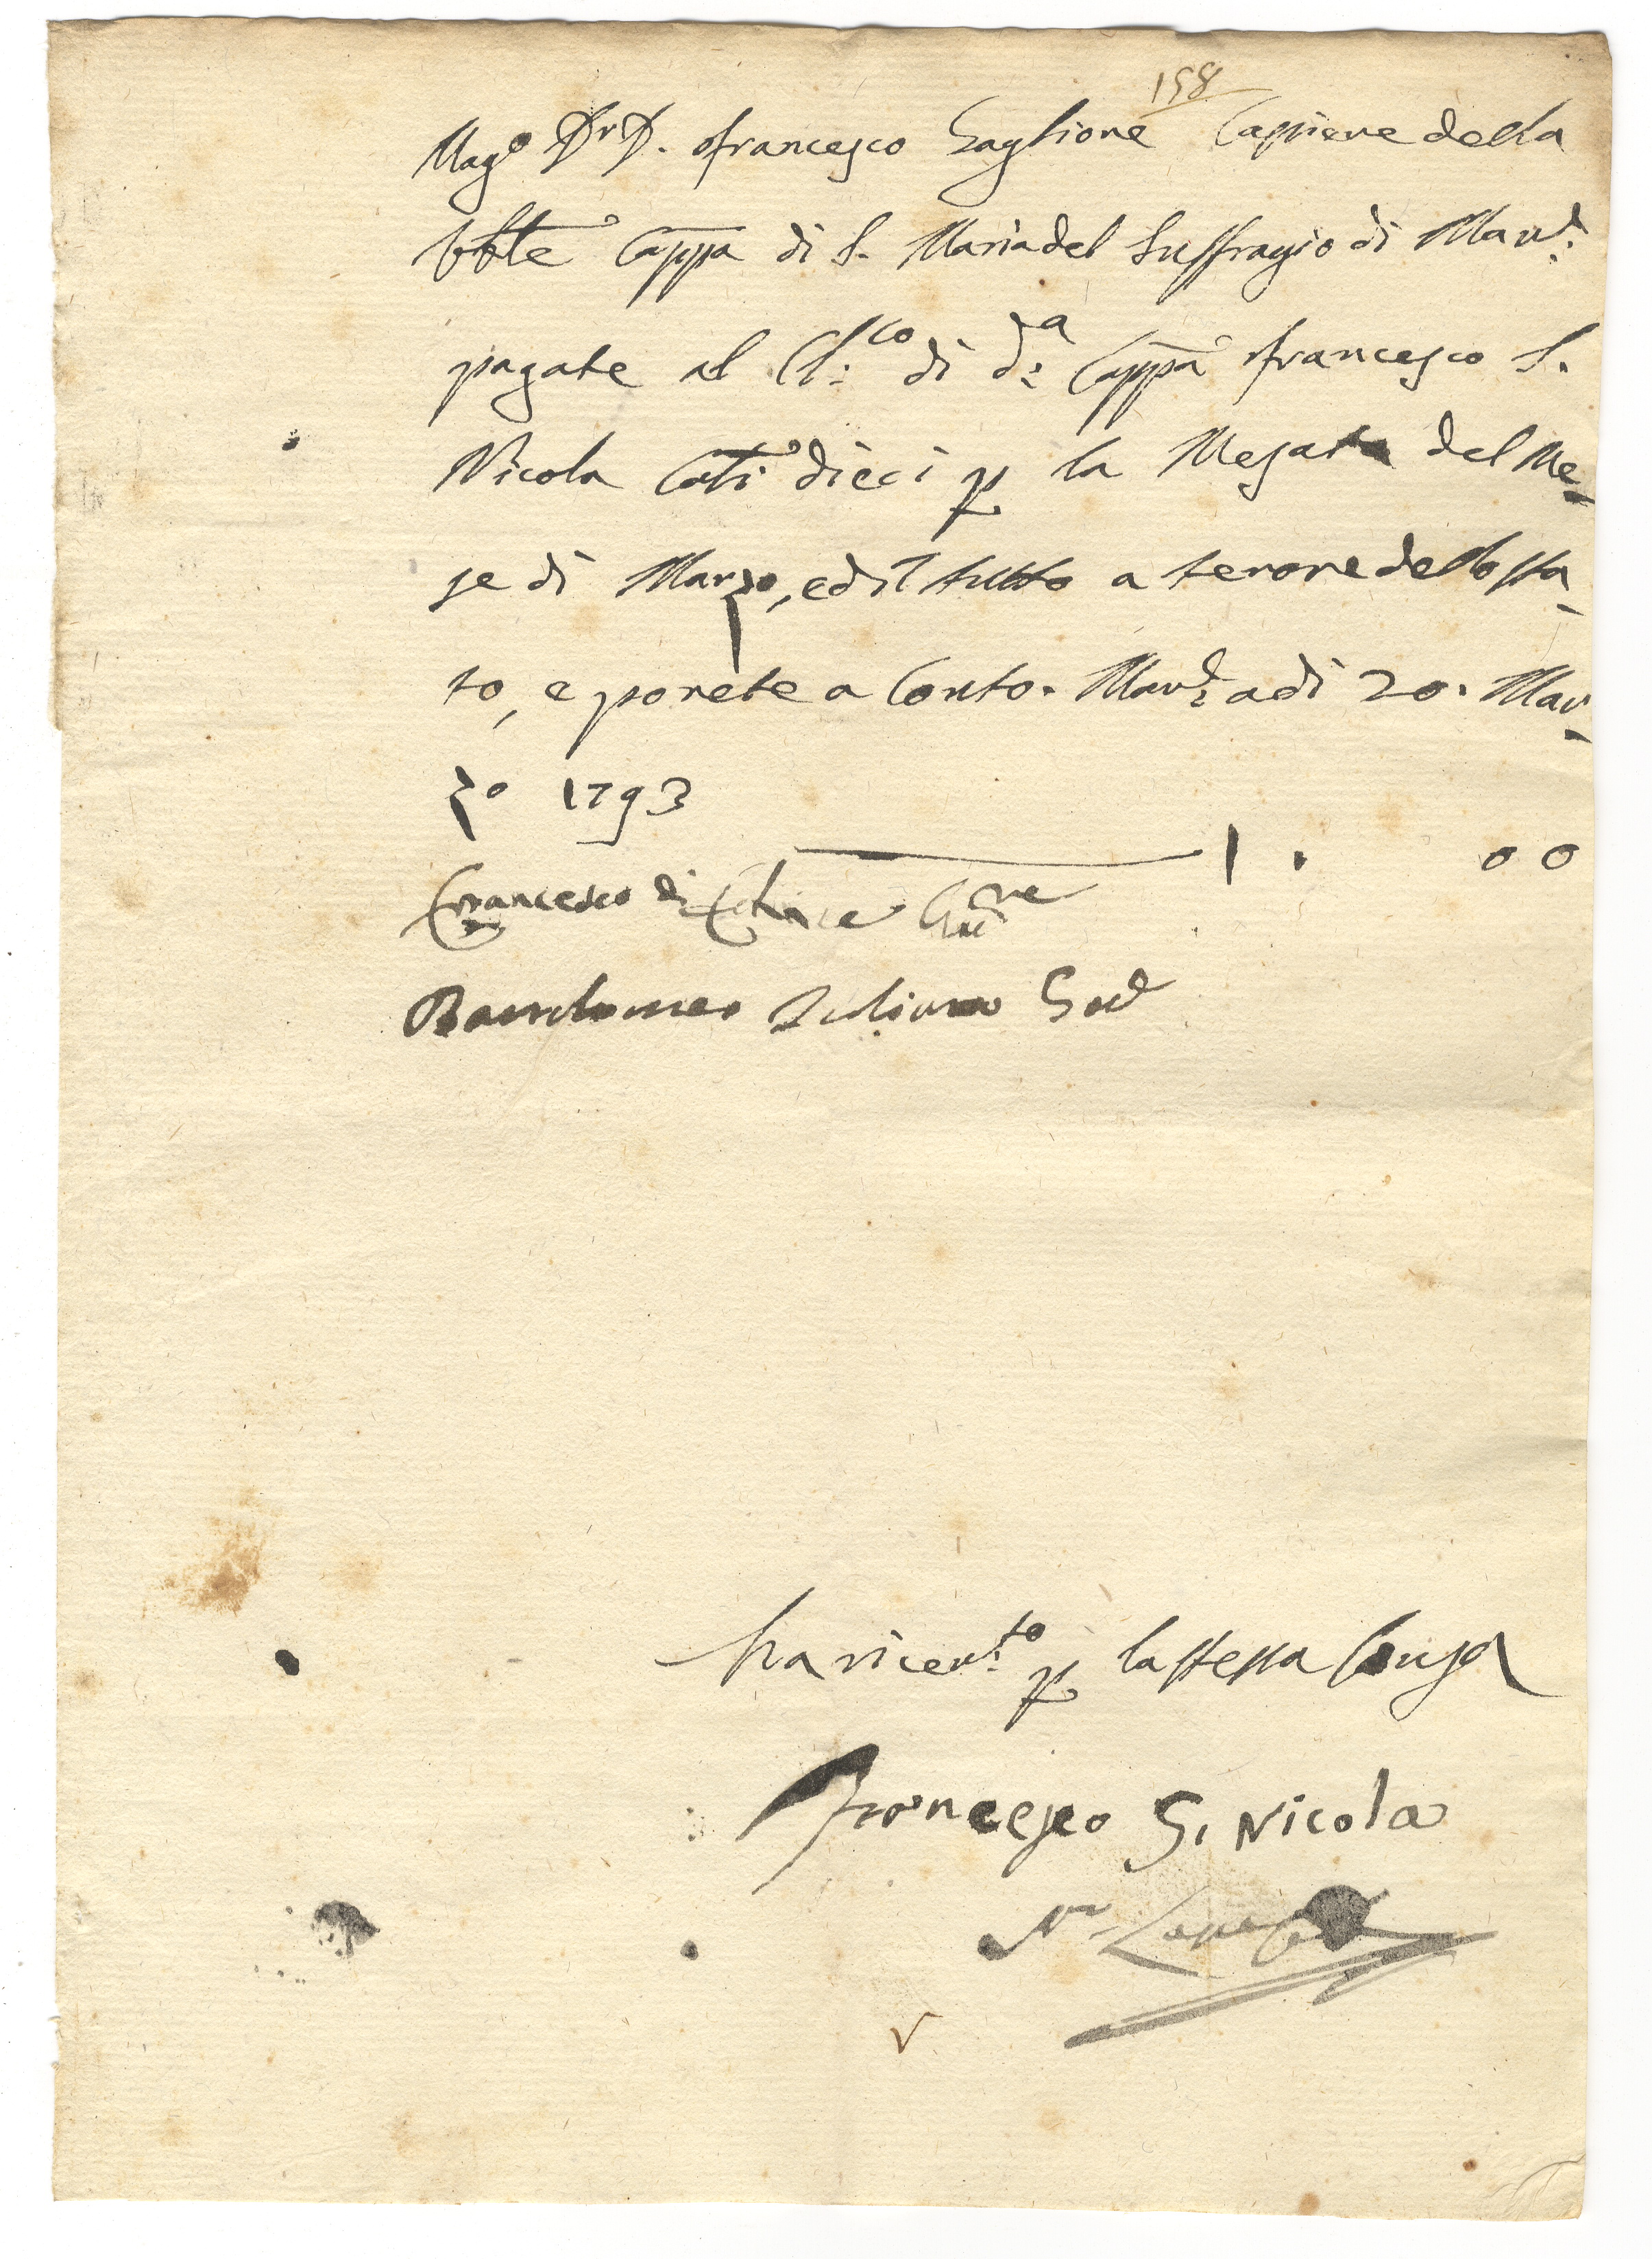 158
Mag.o Dr D. Francesco Gaglione Cassiere della
Cappa di S. Maria del Suffragio di Mard:
pagate al Cl:co di d:a Cappa Francesco S.
Nicola dieci p la Mesata del Me-
se di Marzo, ed il tutto a tenore dello sta-
to, e ponete a Conto. Mard: adi 20. Mar-
zo 1793
1. 00
Francesco di
Bartolomeo Juliano
ha ricev:to p la stessa Causa
Francesco S. Nicola